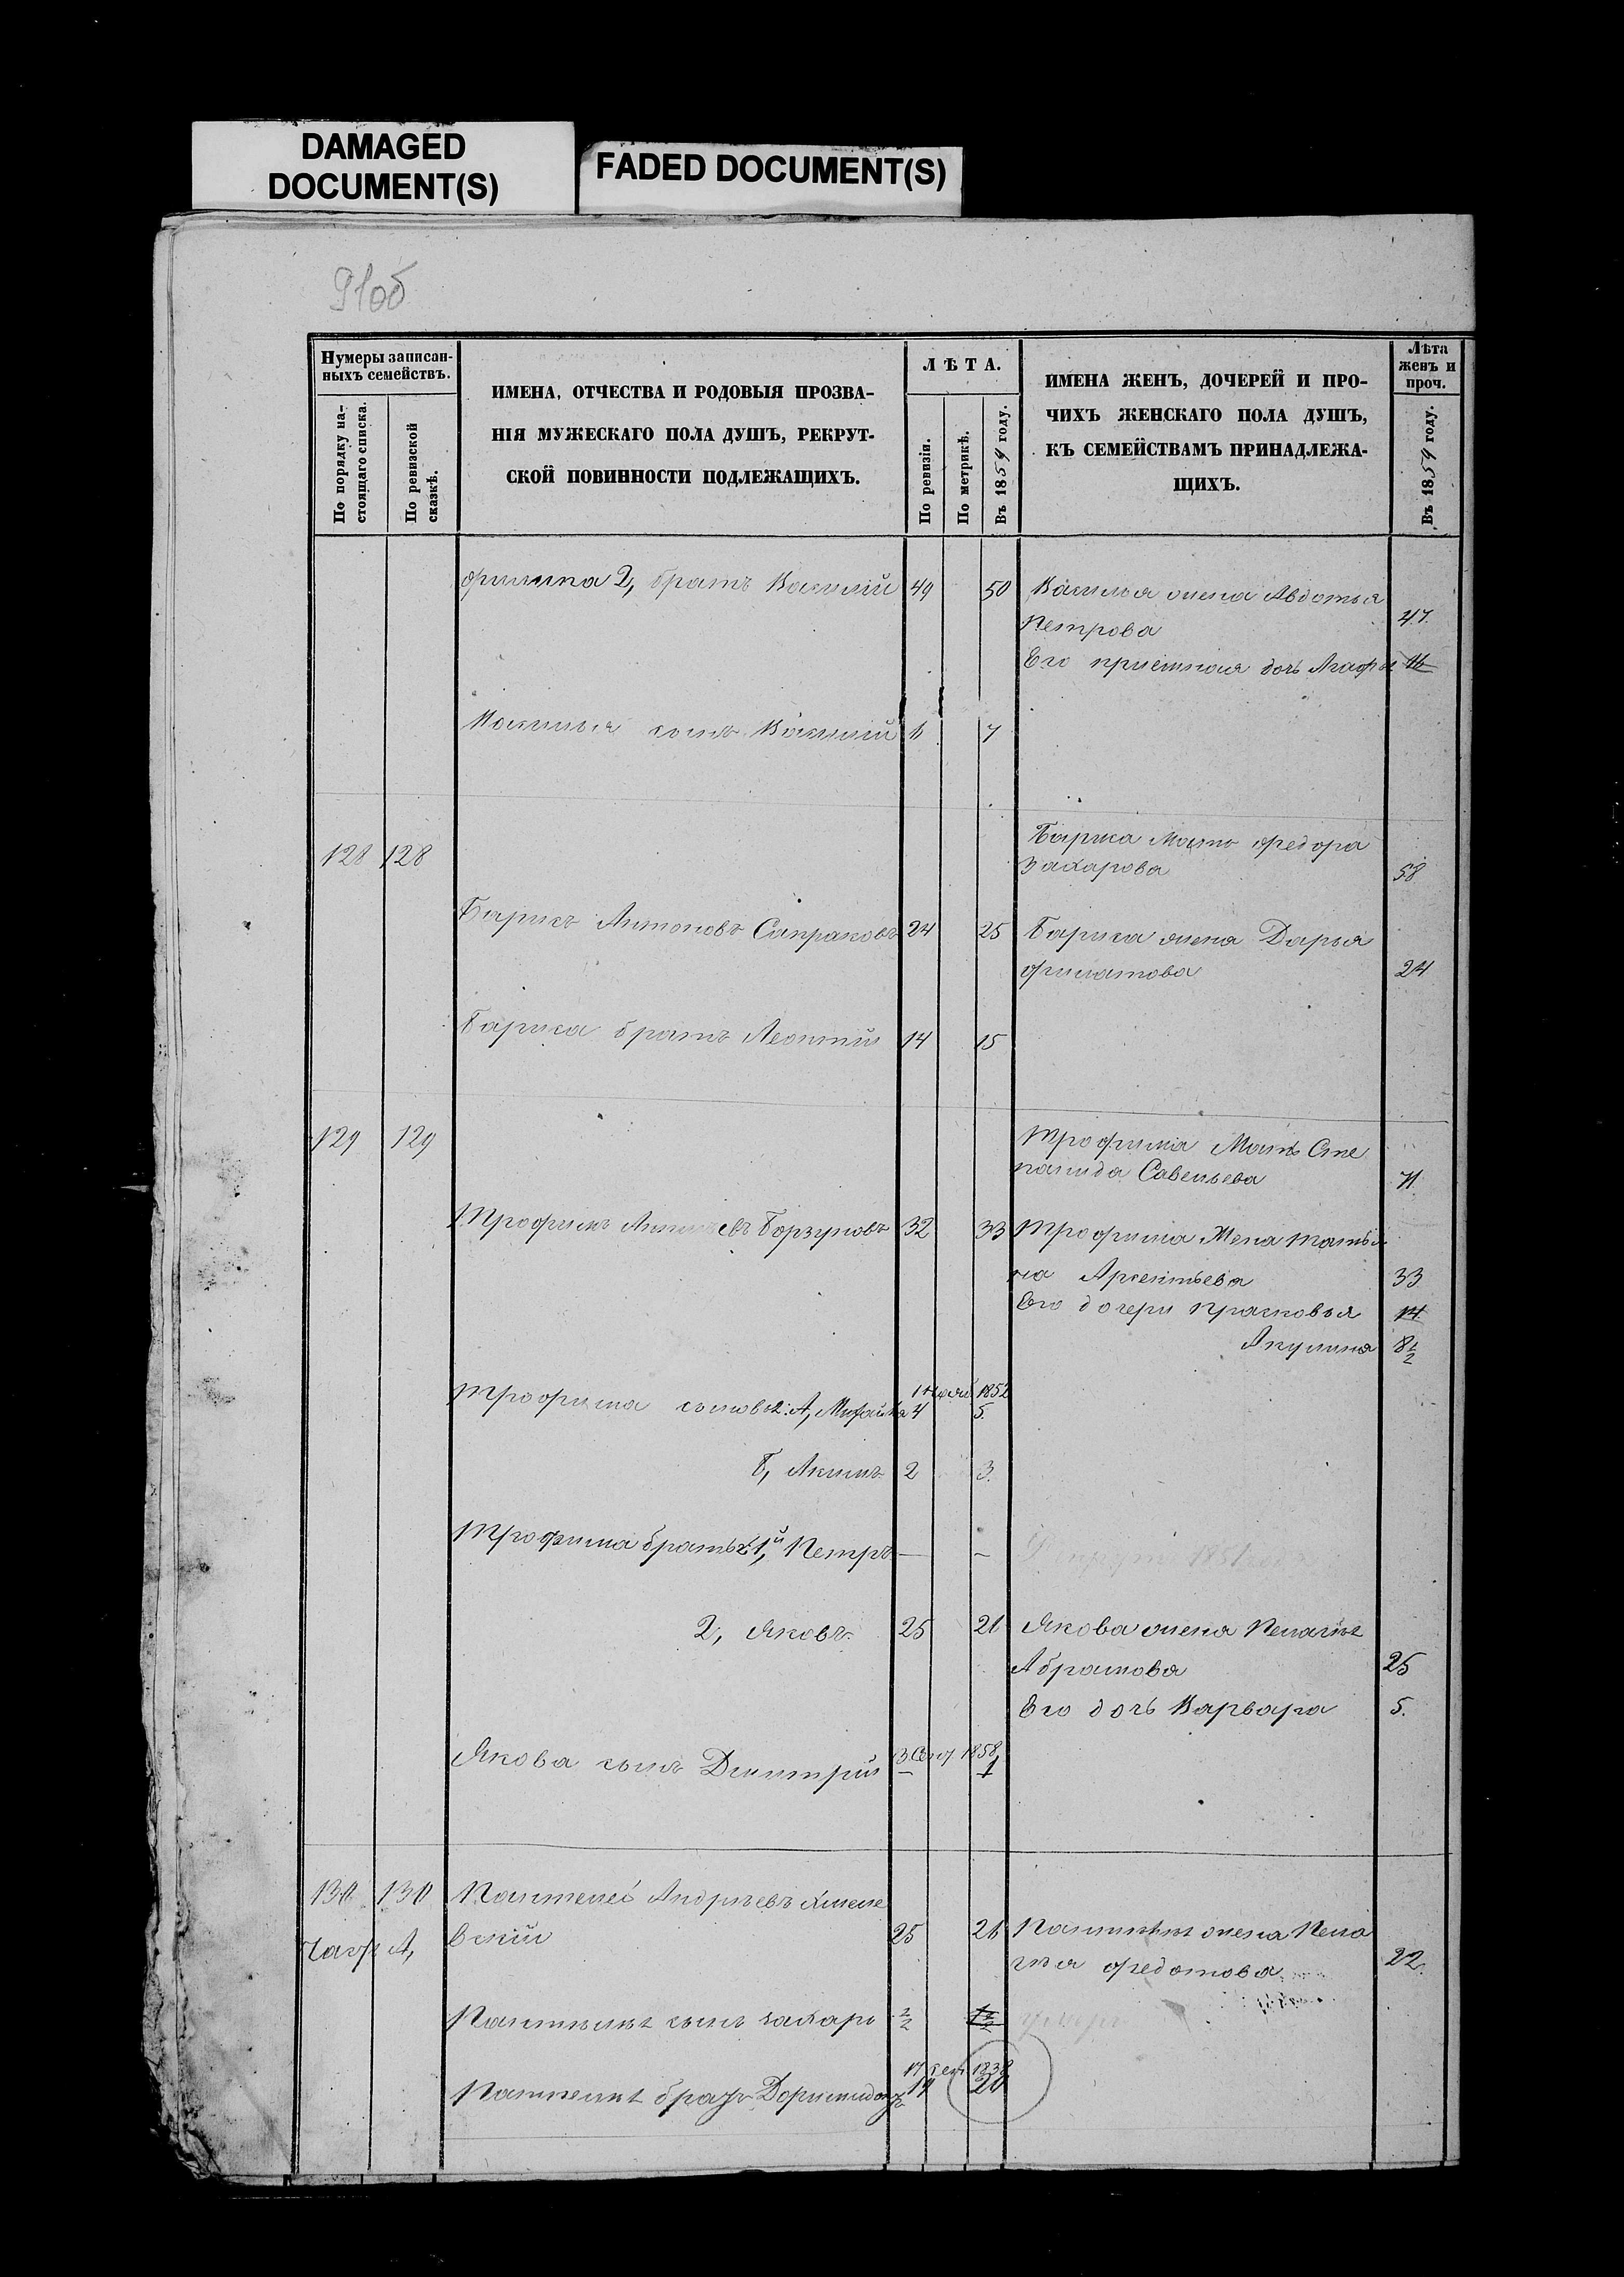 DAMAGED
DOCUMENT(S)
FADED DOCUMENT(S)
91об
Нумеры записан-
ныхъ семействъ.
По порядку на-
стоящаго списка.
По ревизской
сказкѣ.
ИМЕНА, ОТЧЕСТВА И РОДОВЫЯ ПРОЗВА-
НІЯ МУЖЕСКАГО ПОЛА ДУШЪ, РЕКРУТ-
СКОЙ ПОВИННОСТИ ПОДЛЕЖАЩИХЪ.
ЛѢТА.
По ревизіи.
По метрикѣ.
Въ 1859 году.
ИМЕНА ЖЕНЪ, ДОЧЕРЕЙ И ПРО-
ЧИХЪ ЖЕНСКАГО ПОЛА ДУШЪ,
КЪ СЕМЕЙСТВАМЪ ПРИНАДЛЕЖА-
ЩИХЪ.
Лѣта
женъ и
проч.
Въ 1859 году.
Филипа 2, братъ Василій 49 50 Василья жена Авдотья
Петрова 47
Его приемная дочь Агафья 16
Василья сынъ Василій 6 7
128 128 Бариса Мать Федора
Захарова 58
Барисъ Антоновъ Сапраковъ 24 25 Бариса жена Дарья
Филатова 24
Бариса братъ Леонтий 14 15
129 129 Трофима Мать Сте
панида Савельева 71
Трофимъ Борзуновъ 32 33 Трофима Жена Татья
на Арсентьева 33
Его дочери Прасковья 14
Акулина 8 1/2
1852
Трофима сыновья: А, Михайла 4 5
Б, Акимъ 2 3
Трофима братья 1й, Петръ — —
2, Яковъ 25 26 Якова жена Пелагея
Абрамова 25
Его дочь Варвара 5.
3 Сент. 1858
Якова сынъ Дмитрий — 1
130 130 Пантелей Андреевъ Хмеле
вский 25 26 Пантелея жена Пела
гея Федотова 22
А,
Пантелея сынъ Захаръ 1/2 1 1/2
17 1838
Пантелея братъ Доримидонтъ 19 20